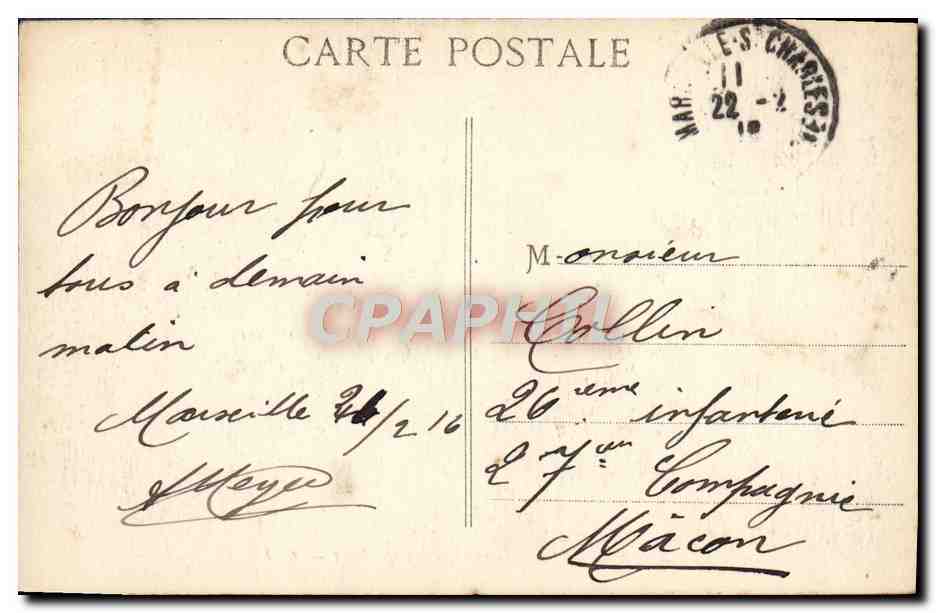 CARTE POSTALE
MARSEILLE-ST CHARLES
11
22 - 2
16
Bonjour pour
tous à demain
matin
Marseille /2 16
AMeyer
M-onsieur
Collin
26 ième infanterie
27 ième Compagnie
Mâcon
CPAPHIL